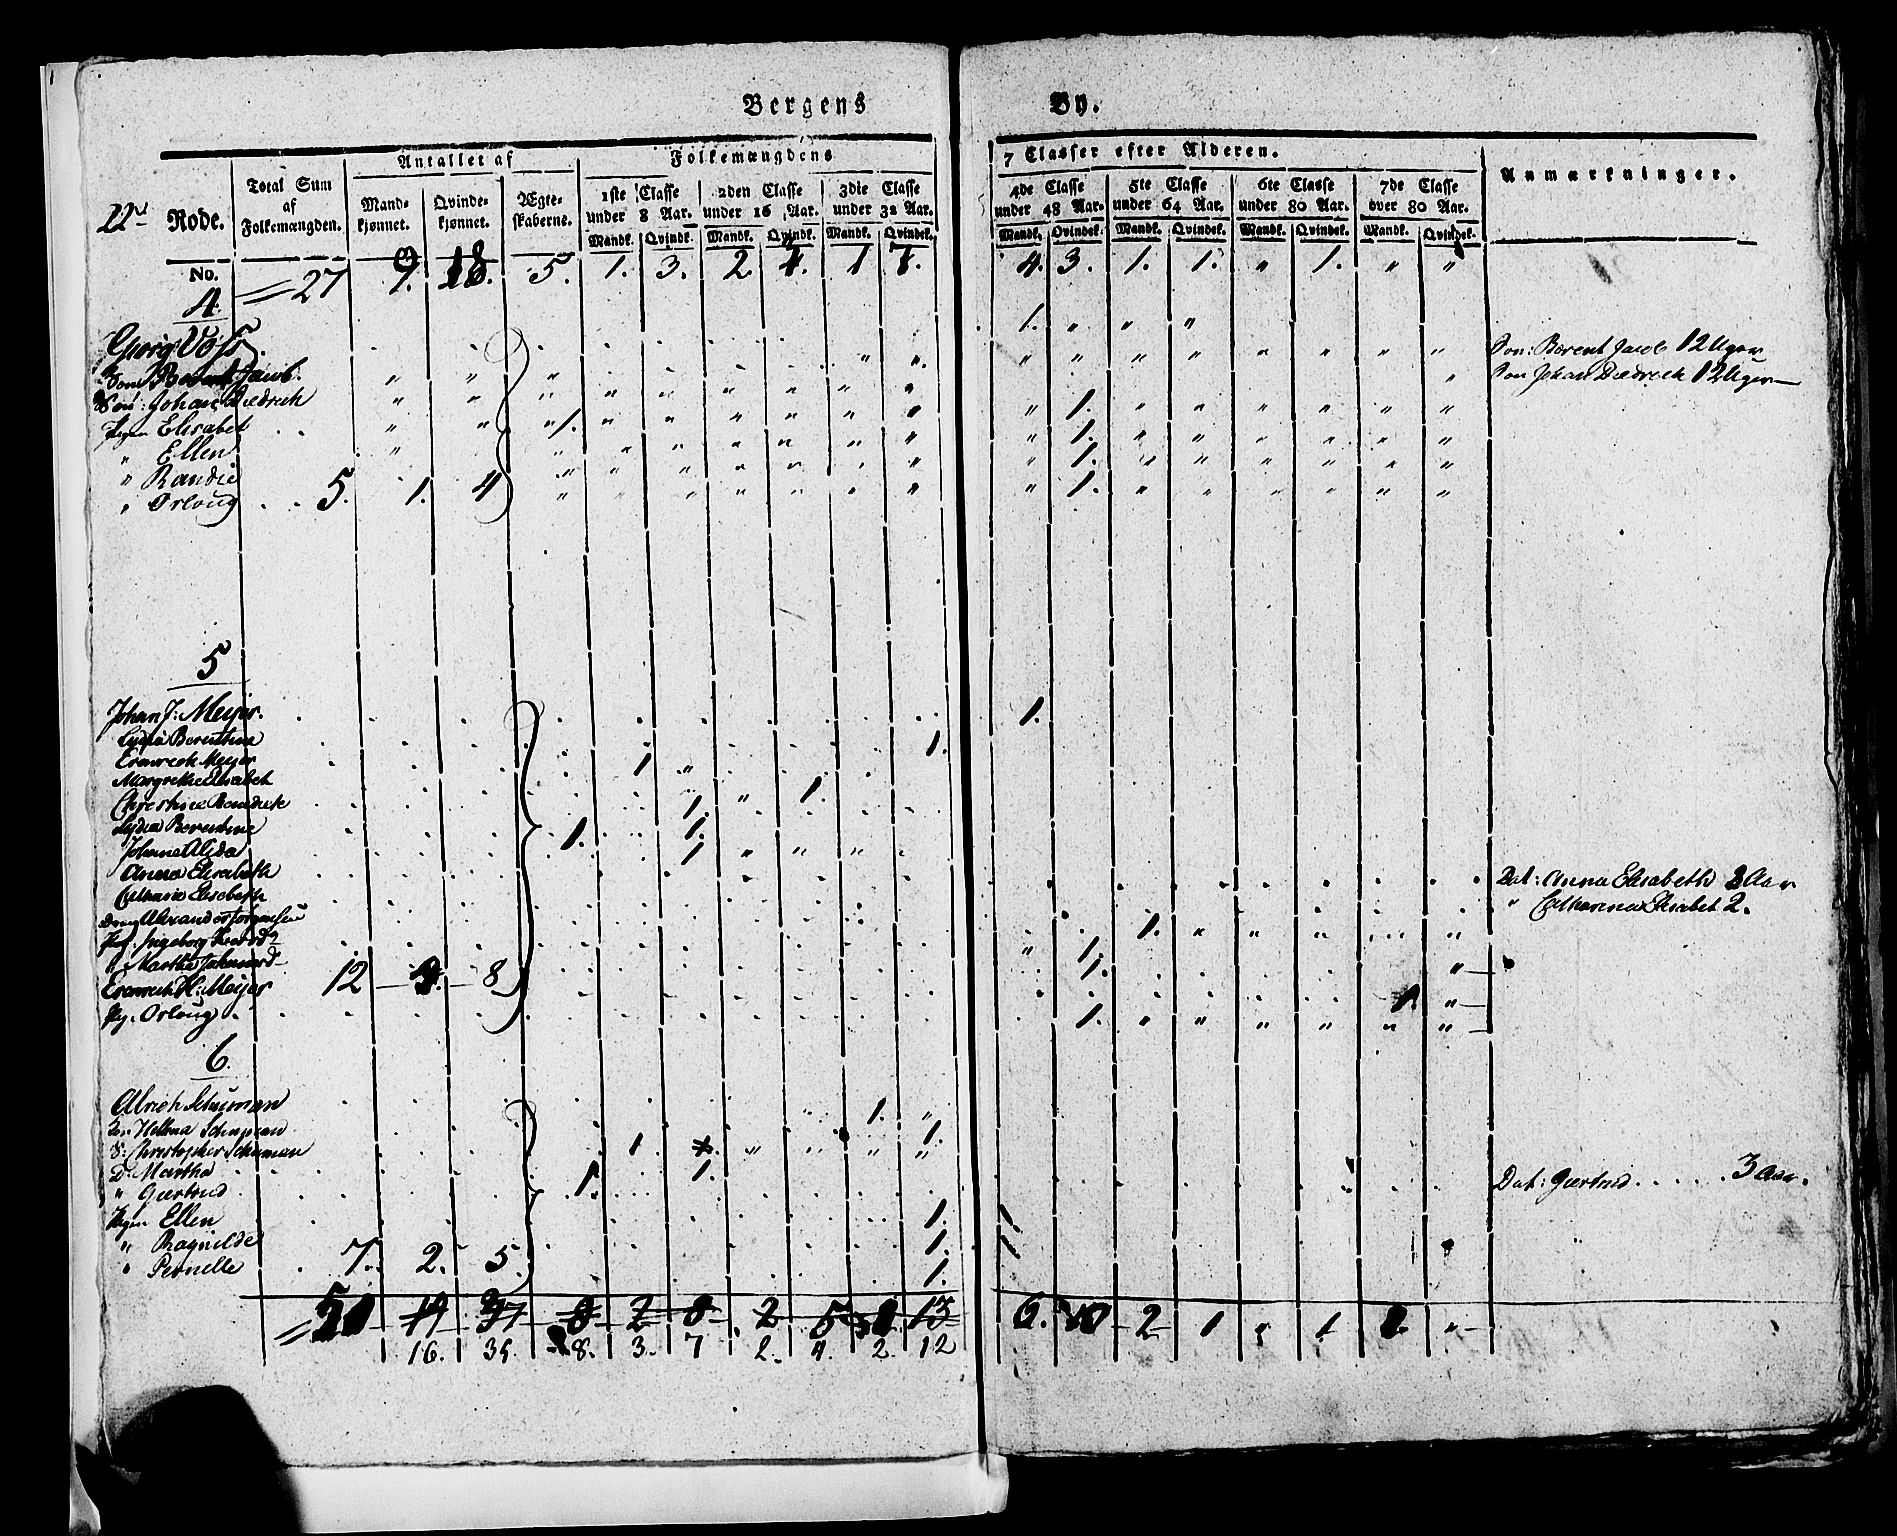 Bergens By.
22d Rode.
Total Sum af Folkemængden.
Antallet af
Mandkjønnet. Qvindekjønnet. Ægteskaberne.
Folkemængdens 7 Classer efter Alderen.
1ste Classe under 8 Aar. 2den Classe under 16 Aar. 3die Classe under 32 Aar. 4de Classe under 48 Aar. 5te Classe under 64 Aar. 6te Classe under 80 Aar. 7de Classe over 80 Aar.
Mandk. Qvindek. Mandk. Qvindek. Mandk. Qvindek. Mandk. Qvindek. Mandk. Qvindek. Mandk. Qvindek. Mandk. Qvindek.
Anmærkninger.
No. 27 9. 18. 5. 1. 3. 2 4. 1 7. 4. 3. 1. 1. " 1. " "
4.
Georg Voss 1. " " "
Søn: Berent Jacob: Søn: Berent Jacob 12 Uger
Søn: Johan Diedrich Søn Johan Diedrich 12 Uger
Pigen Elisabet 1.
" Ellen 1.
" Randie 1.
" Orloug 5. 1. 4 1.
5
Johan J: Meyer. 1.
Lydia Berenthine 1.
Erenreich Meyer 1
Margrethe Elisabet 1.
Christine Benedicte 1.
Lydia Berentine 1. 1.
Johane Alida 1
Anna Elisabeth Dat: Anna Elisabeth 3 Aar
Catharina Elisabeth " Catharina Elisabet 2.
Dreng Alexander Jørgensen 1.
Pig. Ingeborg 1.
" Martha 1.
Erenreich H: Meyer 12 8 1.
Pig. Orloug 1.
6.
Ulrich Schuman 1. "
Kon Hellena Schuman 1.
S: Christopher Schuman 1
D: Martha 1. 1.
" Giertrud Dat: Giertrud . . . . . 3 Aar.
Pigen Ellen 1.
" Ragnilde 1.
" Pernelle 7. 2. 5. 1.
51 19 37 8 2 8 2 5 13 6. 10 2 1 " 1 "
16. 35 8. 3. 7 2. 4. 2. 12